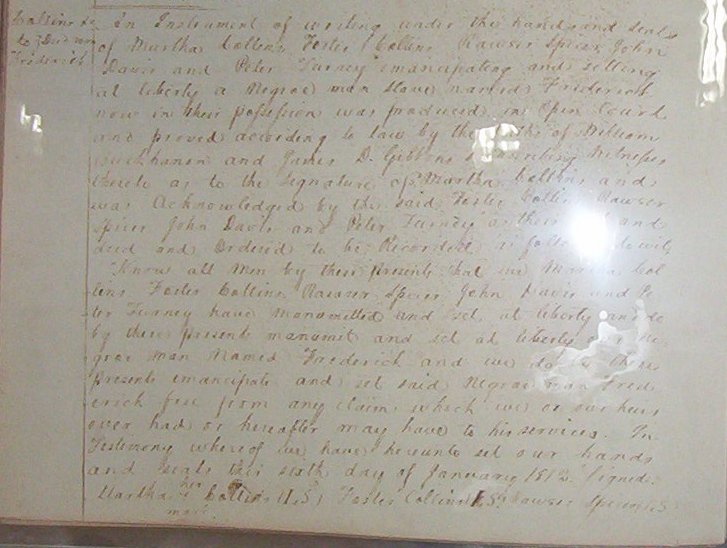 Collins &c
to Deed man
Frederick
An Instrument of writing under the hands and seals
of Martha Collins Foster Collins Rawser Spiers John
Davis and Peter Turney emancipating and setting
at liberty a Negroe man slave named Frederick
now in their possession was produced in Open Court
and proved according to law by the oaths of William
Buchanon and James D. Gibbons Witnesses
thereto as to the signature of Martha Collins and
was Acknowledged by the said Foster Collins Rawser
Spiers John Davis and Peter Turney as their and
deed and Ordered to be Recorded as follows towit,
Know all Men by these presents that we Martha Col
lins Foster Collins Rawser Spiers John Davis and Pe
ter Turney have manumitted and set at liberty and do
by these presents manumit and set at liberty a Ne
groe man Named Frederick and we do by these
presents emancipate and set said Negroe man Fred
erick free from any claim which we or our heirs
ever had or hereafter may have to his services. In
Testimony whereof we have hereunto set our hands
and seals this sixth day of January 1812 Signed.
Martha her Collins (LS) Foster Collins (LS) Rawser Spiers (LS)
mark